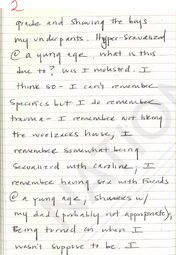 2
grade and showing the boys
my underpants. Hyper-sexualized
@ a young age. What is this
due to? Was I molested. I
think so - I can't remember
specifics but I do remember
trauma - I remember not liking
the house, I
remember somewhat being
sexualized with caroline, I
remember having sex with friends
@ a young age, showers w/
my dad (probably not appropriate).
Being turned on when I
wasn't suppose to be. I